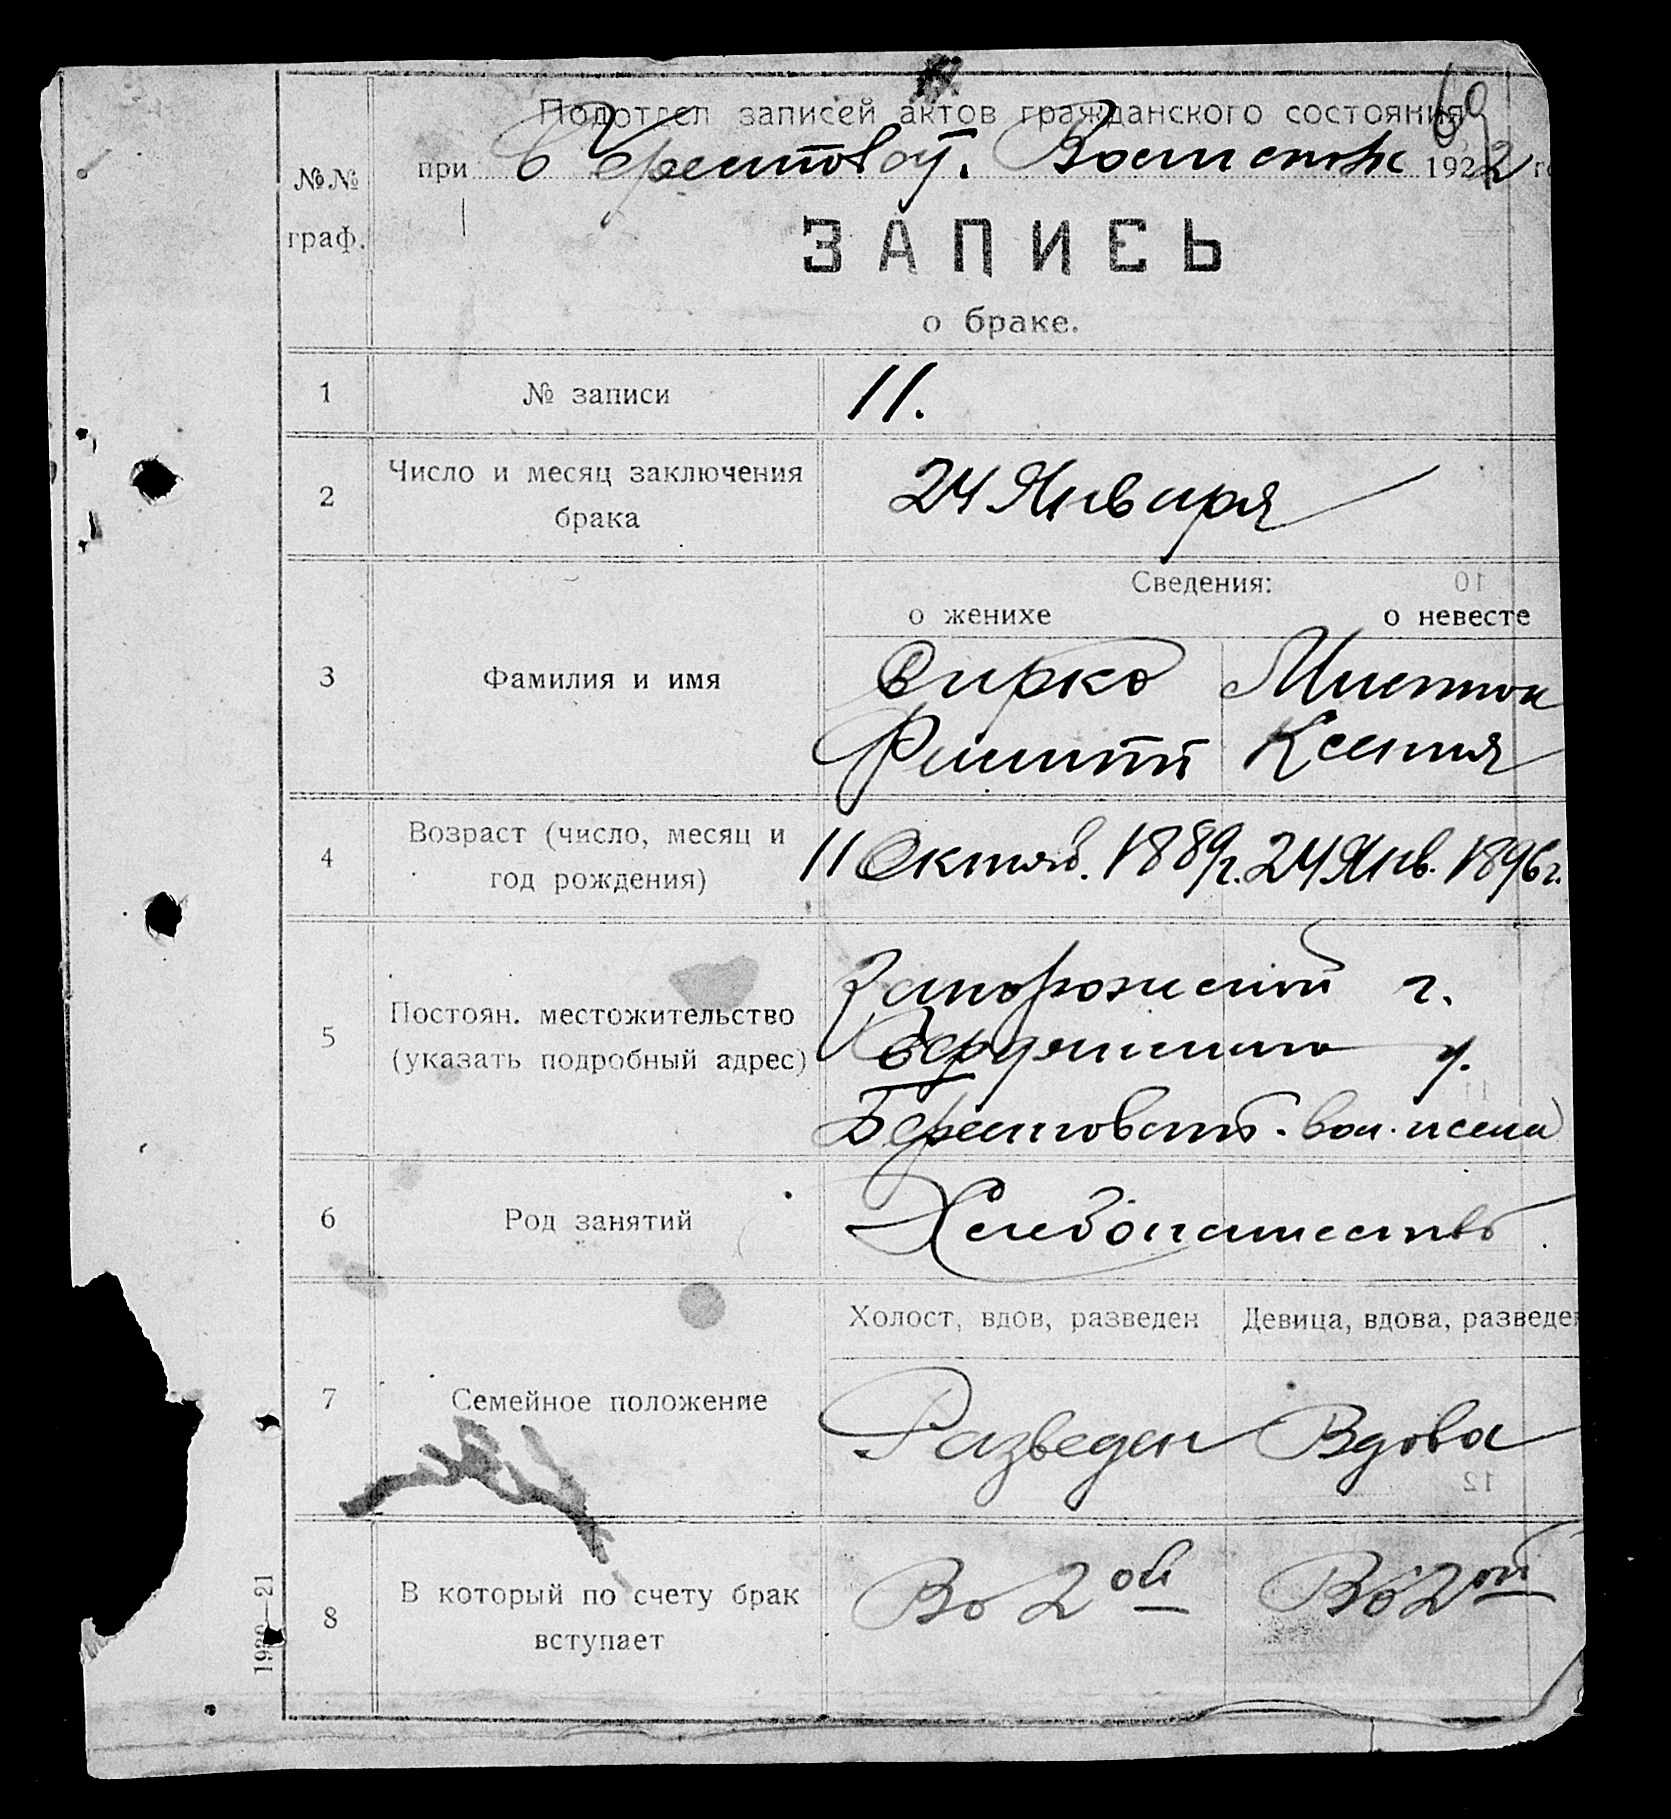 69
Подотдел записей актов гражданского состояния
при 1922 го
№№ граф.
ЗАПИСЬ
о браке.
1 № записи 11.
2 Число и месяц заключения 24 Января
брака
Сведения:
о женихе о невесте
3 Фамилия и имя
Ксения
4 Возраст (число, месяц и 11 Октяб. 1889г. 24 Янв. 1896г.
год рождения)
Запорожской г.
5 Постоян. местожительство Бердянского у.
(указать подробный адрес)
Берестовской вол. и села
6 Род занятий Хлебопашество
Холост, вдов, разведен Девица, вдова, разведен
7 Семейное положение Разведен Вдова
8 В который по счету брак Во 2ой Во 2ой
вступает
21